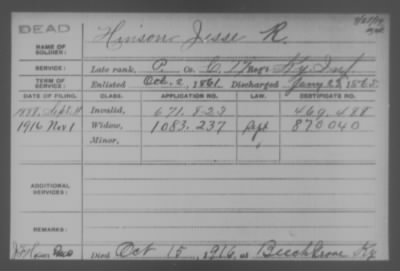 DEAD
Hinson Jesse R.
NAME OF SOLDIER:
SERVICE: Late rank, P. Co. C, 17 Reg't Ky. Inf.
TERM OF SERVICE: Enlisted Oct. 2, 1861. Discharged Jany 23 1865
DATE OF FILING. CLASS. APPLICATION NO. LAW. CERTIFICATE NO.
1888. Sept. Invalid, 671.823 469.488
1916 Nov 1 Widow, 1083.237 Sept 870040
Minor,
ADDITIONAL SERVICES:
REMARKS:
Died Oct 15, 1916, at Beech Grove Ky